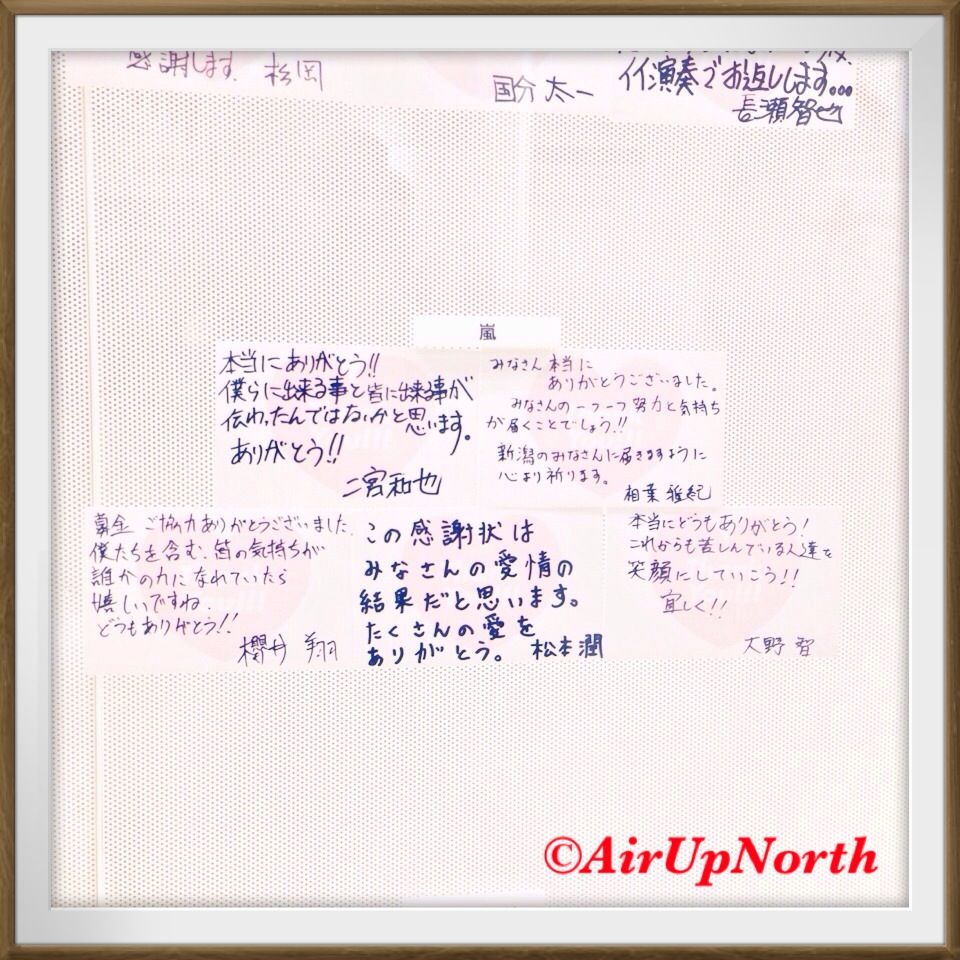 感謝します. 松岡
国分 太一
イイ演奏でお返しします...
長瀬智也
嵐
本当にありがとう!!
僕らに出来る事と皆に出来る事が
伝わったんではないかと思います。
ありがとう!!
二宮和也
みなさん本当に
ありがとうございました。
みなさんの一つ一つ努力と気持ち
が届くことでしょう!!
新潟のみなさんに届きますように
心より祈ります。
相葉雅紀
募金 ご協力ありがとうございました.
僕たちを含む、皆の気持ちが
誰かの力になれていたら
嬉しいですね.
どうもありがとう!!
櫻井 翔
この感謝状は
みなさんの愛情の
結果だと思います。
たくさんの愛を
ありがとう。 松本潤
本当にどうもありがとう!
これからも苦しんでいる人達を
笑顔にしていこう!!
宜しく!!
大野 智
©AirUpNorth